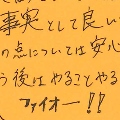 事実として良い
の点については安心
う後はやることやる
ファイオー!!